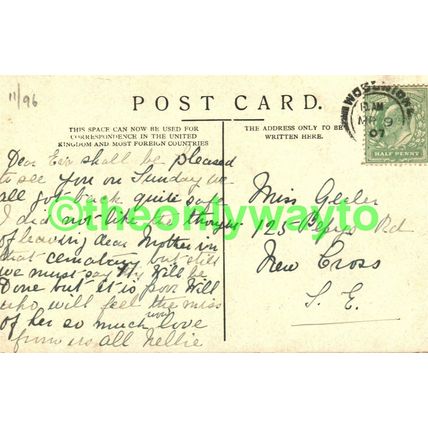 11/96
POST CARD.
THIS SPACE CAN NOW BE USED FOR
CORRESPONDENCE IN THE UNITED
KINGDOM AND MOST FOREIGN COUNTRIES
THE ADDRESS ONLY TO BE
WRITTEN HERE.
12 AM
MR 9
07
HALF PENNY
Dear shall be pleased
to see you on Sunday we
all got back quite safe
I did not like the
of leaving dear Mother in
that cemetary but still
we must say Thy Will be
Done but it is poor Will
who will feel the miss
of her so much now love
from us all Nellie
©theonlywayto
Miss
125 Rd
New Cross
S. E.